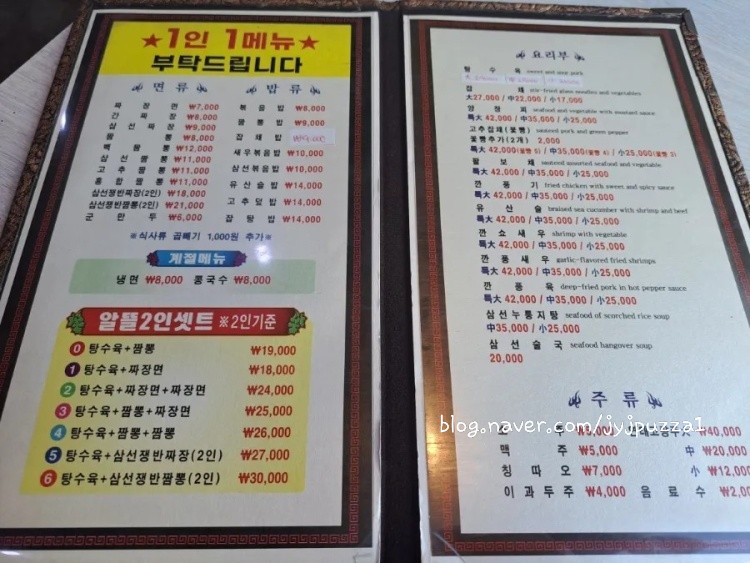 ★1인 1메뉴★
부탁드립니다
면류
짜장면 ₩7,000
간짜장 ₩8,000
삼선짜장 ₩9,000
짬뽕 ₩8,000
백짬뽕 ₩12,000
삼선짬뽕 ₩11,000
고추짬뽕 ₩11,000
홍합짬뽕 ₩11,000
삼선쟁반짜장(2인) ₩18,000
삼선쟁반짬뽕(2인) ₩21,000
군만두 ₩6,000
밥류
볶음밥 ₩8,000
짬뽕밥 ₩9,000
잡채밥 ₩9,000
새우볶음밥 ₩10,000
삼선볶음밥 ₩10,000
유산슬밥 ₩14,000
고추덮밥 ₩14,000
잡탕밥 ₩14,000
※식사류 곱빼기 1,000원 추가※
계절메뉴
냉면 ₩8,000 콩국수 ₩8,000
알뜰2인셋트 ※2인기준
0 탕수육+짬뽕 ₩19,000
1 탕수육+짜장면 ₩18,000
2 탕수육+짜장면+짜장면 ₩24,000
3 탕수육+짬뽕+짜장면 ₩25,000
4 탕수육+짬뽕+짬뽕 ₩26,000
5 탕수육+삼선쟁반짜장(2인) ₩27,000
6 탕수육+삼선쟁반짬뽕(2인) ₩30,000
요리부
탕수육 sweet and sour pork
잡채 stir-fried glass noodles and vegetables
大27,000 / 中22,000 / 小17,000
양장피 seafood and vegetable with mustard sauce
특大 42,000 / 中35,000 / 小25,000
고추잡채(꽃빵) sauteed pork and green pepper
꽃빵추가(2개) 2,000
특大 42,000(꽃빵 5) / 中35,000(꽃빵 4) / 小25,000(꽃빵 3)
팔보채 sauteed assorted seafood and vegetable
특大 42,000 / 中35,000 / 小25,000
깐풍기 fried chicken with sweet and spicy sauce
특大 42,000 / 中35,000 / 小25,000
유산슬 braised sea cucumber with shrimp and beef
특大 42,000 / 中35,000 / 小25,000
깐쇼새우 shrimp with vegetable
특大 42,000 / 中35,000 / 小25,000
깐풍새우 garlic-flavored fried shrimps
특大 42,000 / 中35,000 / 小25,000
깐풍육 deep-fried pork in hot pepper sauce
특大 42,000 / 中35,000 / 小25,000
삼선누룽지탕 seafood of scorched rice soup
中35,000 / 小25,000
삼선술국 seafood hangover soup
20,000
주류
₩40,000
맥주 ₩5,000 中 ₩20,000
칭따오 ₩7,000 小 ₩12,000
이과두주 ₩4,000 음료수 ₩2,0
blog.naver.com/jyjpuzza1